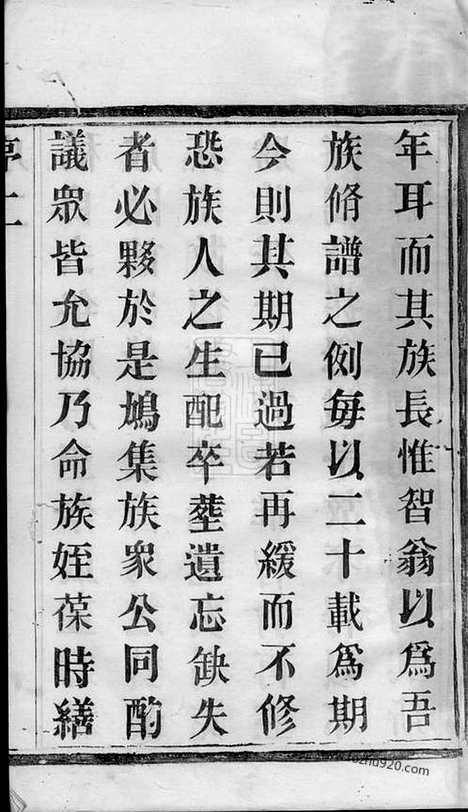 年耳而其族長惟智翁以爲吾
族脩譜之例每以二十載爲期
今則其期已過若再緩而不修
恐族人之生配卒塟遺忘缺失
者必夥於是鳩集族衆公同酌
議眾皆允協乃命族姪葆時繕